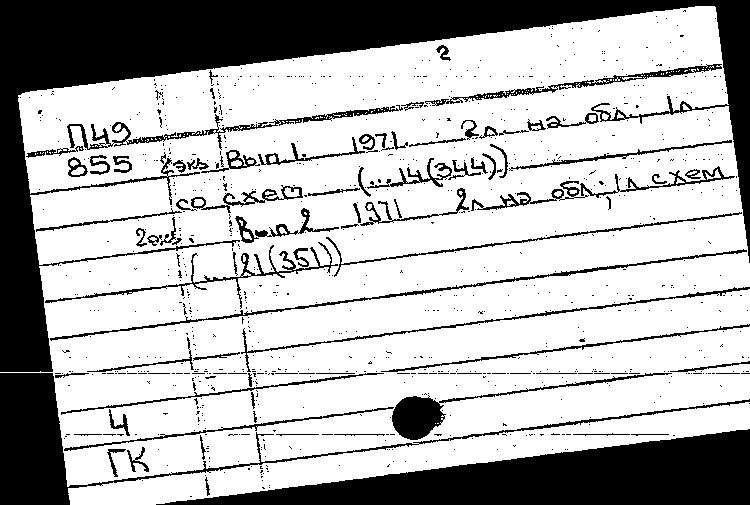 2
П49
855 2 экз. Вып 1. 1971. 2л. на обл.; 1л
со схем (...14(344))
2экз. Вып 2 1971 2л на обл.; 1л схем
(... 21(351))
4
ГК